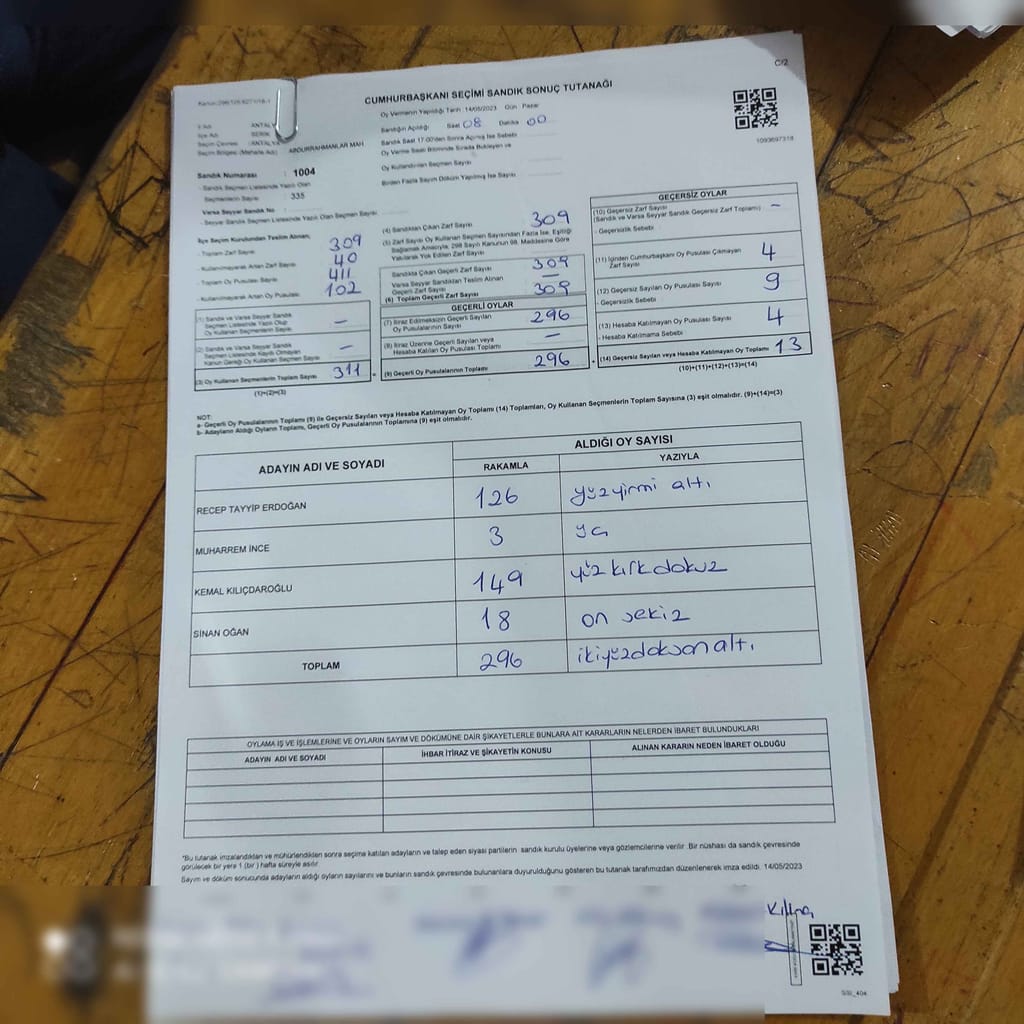 C/2
CUMHURBAŞKANI SEÇİMİ SANDIK SONUÇ TUTANAĞI
Oy Vermenin Yapıldığı Tarih 14/05/2023 Gün : Pazar
Sandığın Açıldığı Saat 08 Dakika 00
Sandık Saat 17:00'den Sonra Açılmış İse Sebebi
Oy Verme Saati Bitiminde Sırada Bekleyen ve
Oy Kullandırılan Seçmen Sayısı
Birden Fazla Sayım Döküm Yapılmış İse Sayısı
1093697318
İl Adı : ANTAL
İlçe Adı SERİK
Seçim Çevresi : ANTALYA
Seçim Bölgesi (Mahalle Adı) : ABDURRAHMANLAR MAH
Sandık Numarası : 1004
- Sandık Seçmen Listesinde Yazılı Olan
Seçmenlerin Sayısı : 335
Varsa Seyyar Sandık No :
- Seyyar Sandık Seçmen Listesinde Yazılı Olan Seçmen Sayısı
İlçe Seçim Kurulundan Teslim Alınan;
- Toplam Zarf Sayısı 309
- Kullanılmayarak Artan Zarf Sayısı 40
- Toplam Oy Pusulası Sayısı 411
- Kullanılmayarak Artan Oy Pusulası 102
(1) Sandık ve Varsa Seyyar Sandık
Seçmen Listesinde Yazılı Olup
Oy Kullanan Seçmenlerin Sayısı -
(2) Sandık ve Varsa Seyyar Sandık
Seçmen Listesinde Kayıtlı Olmayan
Kanun Gereği Oy Kullanan Seçmen Sayısı -
(3) Oy Kullanan Seçmenlerin Toplam Sayısı 311
(1)+(2)=(3)
(4) Sandıktan Çıkan Zarf Sayısı 309
(5) Zarf Sayısı Oy Kullanan Seçmen Sayısından Fazla İse, Eşitliği
Sağlamak Amacıyla, 298 Sayılı Kanunun 98. Maddesine Göre
Yakılarak Yok Edilen Zarf Sayısı
Sandıkta Çıkan Geçerli Zarf Sayısı 309
Varsa Seyyar Sandıktan Teslim Alınan
Geçerli Zarf Sayısı —
(6) Toplam Geçerli Zarf Sayısı 309
GEÇERLİ OYLAR
(7) İtiraz Edilmeksizin Geçerli Sayılan
Oy Pusulalarının Sayısı 296
(8) İtiraz Üzerine Geçerli Sayılan veya
Hesaba Katılan Oy Pusulası Toplamı —
(9) Geçerli Oy Pusulalarının Toplamı 296
GEÇERSİZ OYLAR
(10) Geçersiz Zarf Sayısı
(Sandık ve Varsa Seyyar Sandık Geçersiz Zarf Toplamı) -
- Geçersizlik Sebebi:
(11) İçinden Cumhurbaşkanı Oy Pusulası Çıkmayan
Zarf Sayısı 4
(12) Geçersiz Sayılan Oy Pusulası Sayısı 9
- Geçersizlik Sebebi
(13) Hesaba Katılmayan Oy Pusulası Sayısı 4
- Hesaba Katılmama Sebebi
(14) Geçersiz Sayılan veya Hesaba Katılmayan Oy Toplamı 13
(10)+(11)+(12)+(13)=(14)
NOT:
a- Geçerli Oy Pusulalarının Toplamı (9) ile Geçersiz Sayılan veya Hesaba Katılmayan Oy Toplamı (14) Toplamları, Oy Kullanan Seçmenlerin Toplam Sayısına (3) eşit olmalıdır. (9)+(14)=(3)
b- Adayların Aldığı Oyların Toplamı, Geçerli Oy Pusulalarının Toplamına (9) eşit olmalıdır.
ADAYIN ADI VE SOYADI
ALDIĞI OY SAYISI
RAKAMLA YAZIYLA
RECEP TAYYİP ERDOĞAN 126 yüzyirmi altı
MUHARREM İNCE 3
KEMAL KILIÇDAROĞLU 149 yüz kırk dokuz
SİNAN OĞAN 18 on sekiz
TOPLAM 296 ikiyüzdoksan altı
OYLAMA İŞ VE İŞLEMLERİNE VE OYLARIN SAYIM VE DÖKÜMÜNE DAİR ŞİKAYETLERLE BUNLARA AİT KARARLARIN NELERDEN İBARET BULUNDUKLARI
ADAYIN ADI VE SOYADI İHBAR İTİRAZ VE ŞİKAYETİN KONUSU ALINAN KARARIN NEDEN İBARET OLDUĞU
*Bu tutanak imzalandıktan ve mühürlendikten sonra seçime katılan adayların ve talep eden siyasi partilerin sandık kurulu üyelerine veya gözlemcilerine verilir. Bir nüshası da sandık çevresinde
görülecek bir yere 1 (bir) hafta süreyle asılır.
Sayım ve döküm sonucunda adayların aldığı oyların sayılarını ve bunların sandık çevresinde bulunanlara duyurulduğunu gösteren bu tutanak tarafımızdan düzenlenerek imza edildi. 14/05/2023